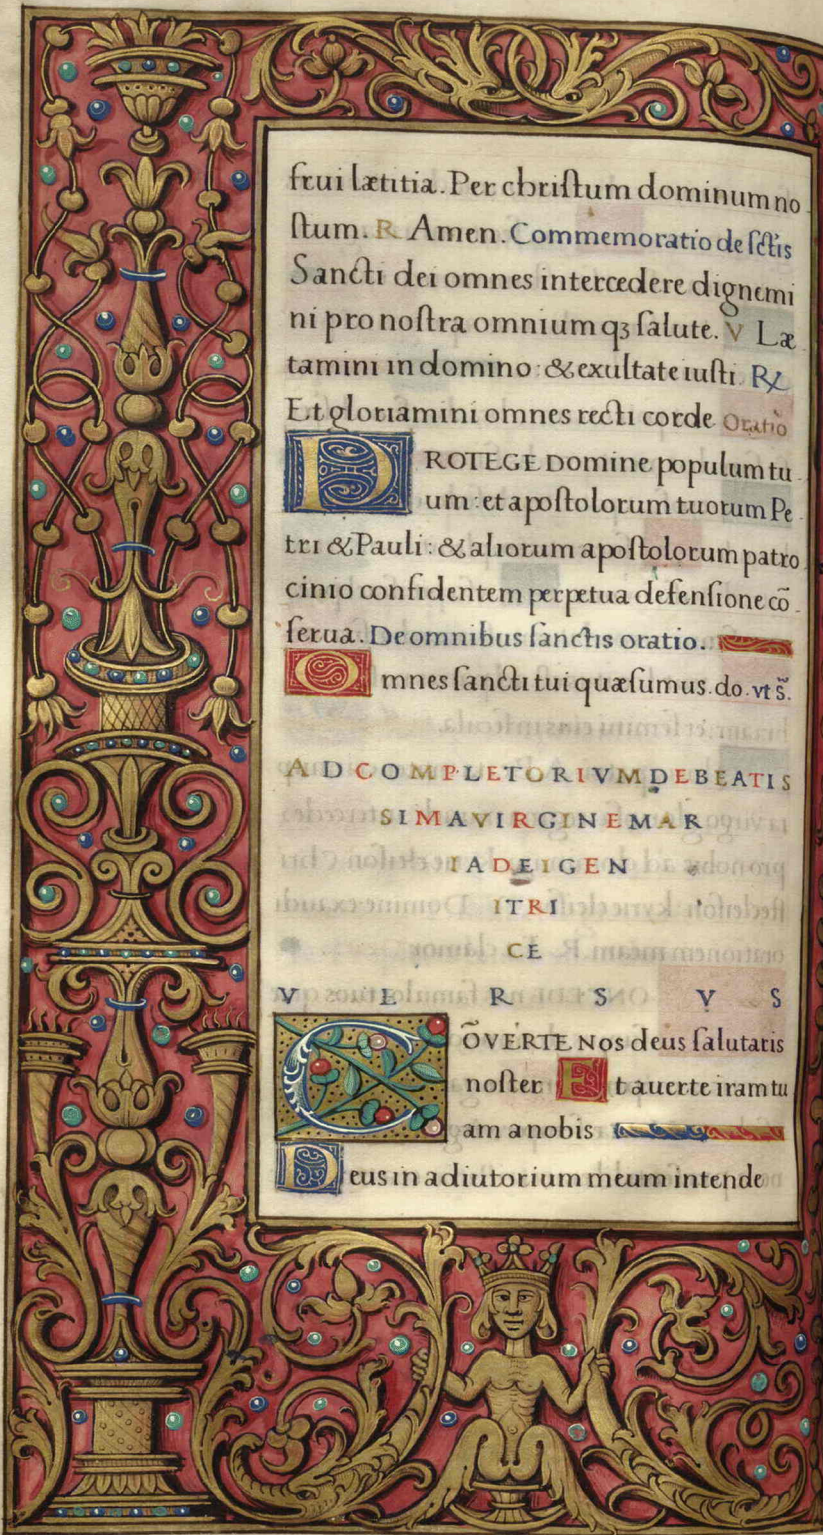 frui lætitia. Per christum dominum no
stum. R Amen. Commemoratio de sc̄tis
Sancti dei omnes intercedere dignemi
ni pro nostra omnium qꝫ salute. V Læ
tamini in domino : & exultate iusti. R℣
Et gloriamini omnes recti corde Oratio
PROTEGE Domine populum tu
um : et apostolorum tuorum Pe
tri & Pauli : & aliorum apostolorum patro
cinio confidentem perpetua defensione cō
serua. De omnibus sanctis oratio.
Omnes sancti tui quæsumus. do. vt s̄.
AD COMPLETORIVM DE BEATIS
SIMA VIRGINE MAR
IA DEI GEN
ITRI
CE
VERSVS
CŌVERTE Nos deus salutaris
noster Et auerte iram tu
am a nobis
Deus in adiutorium meum intende